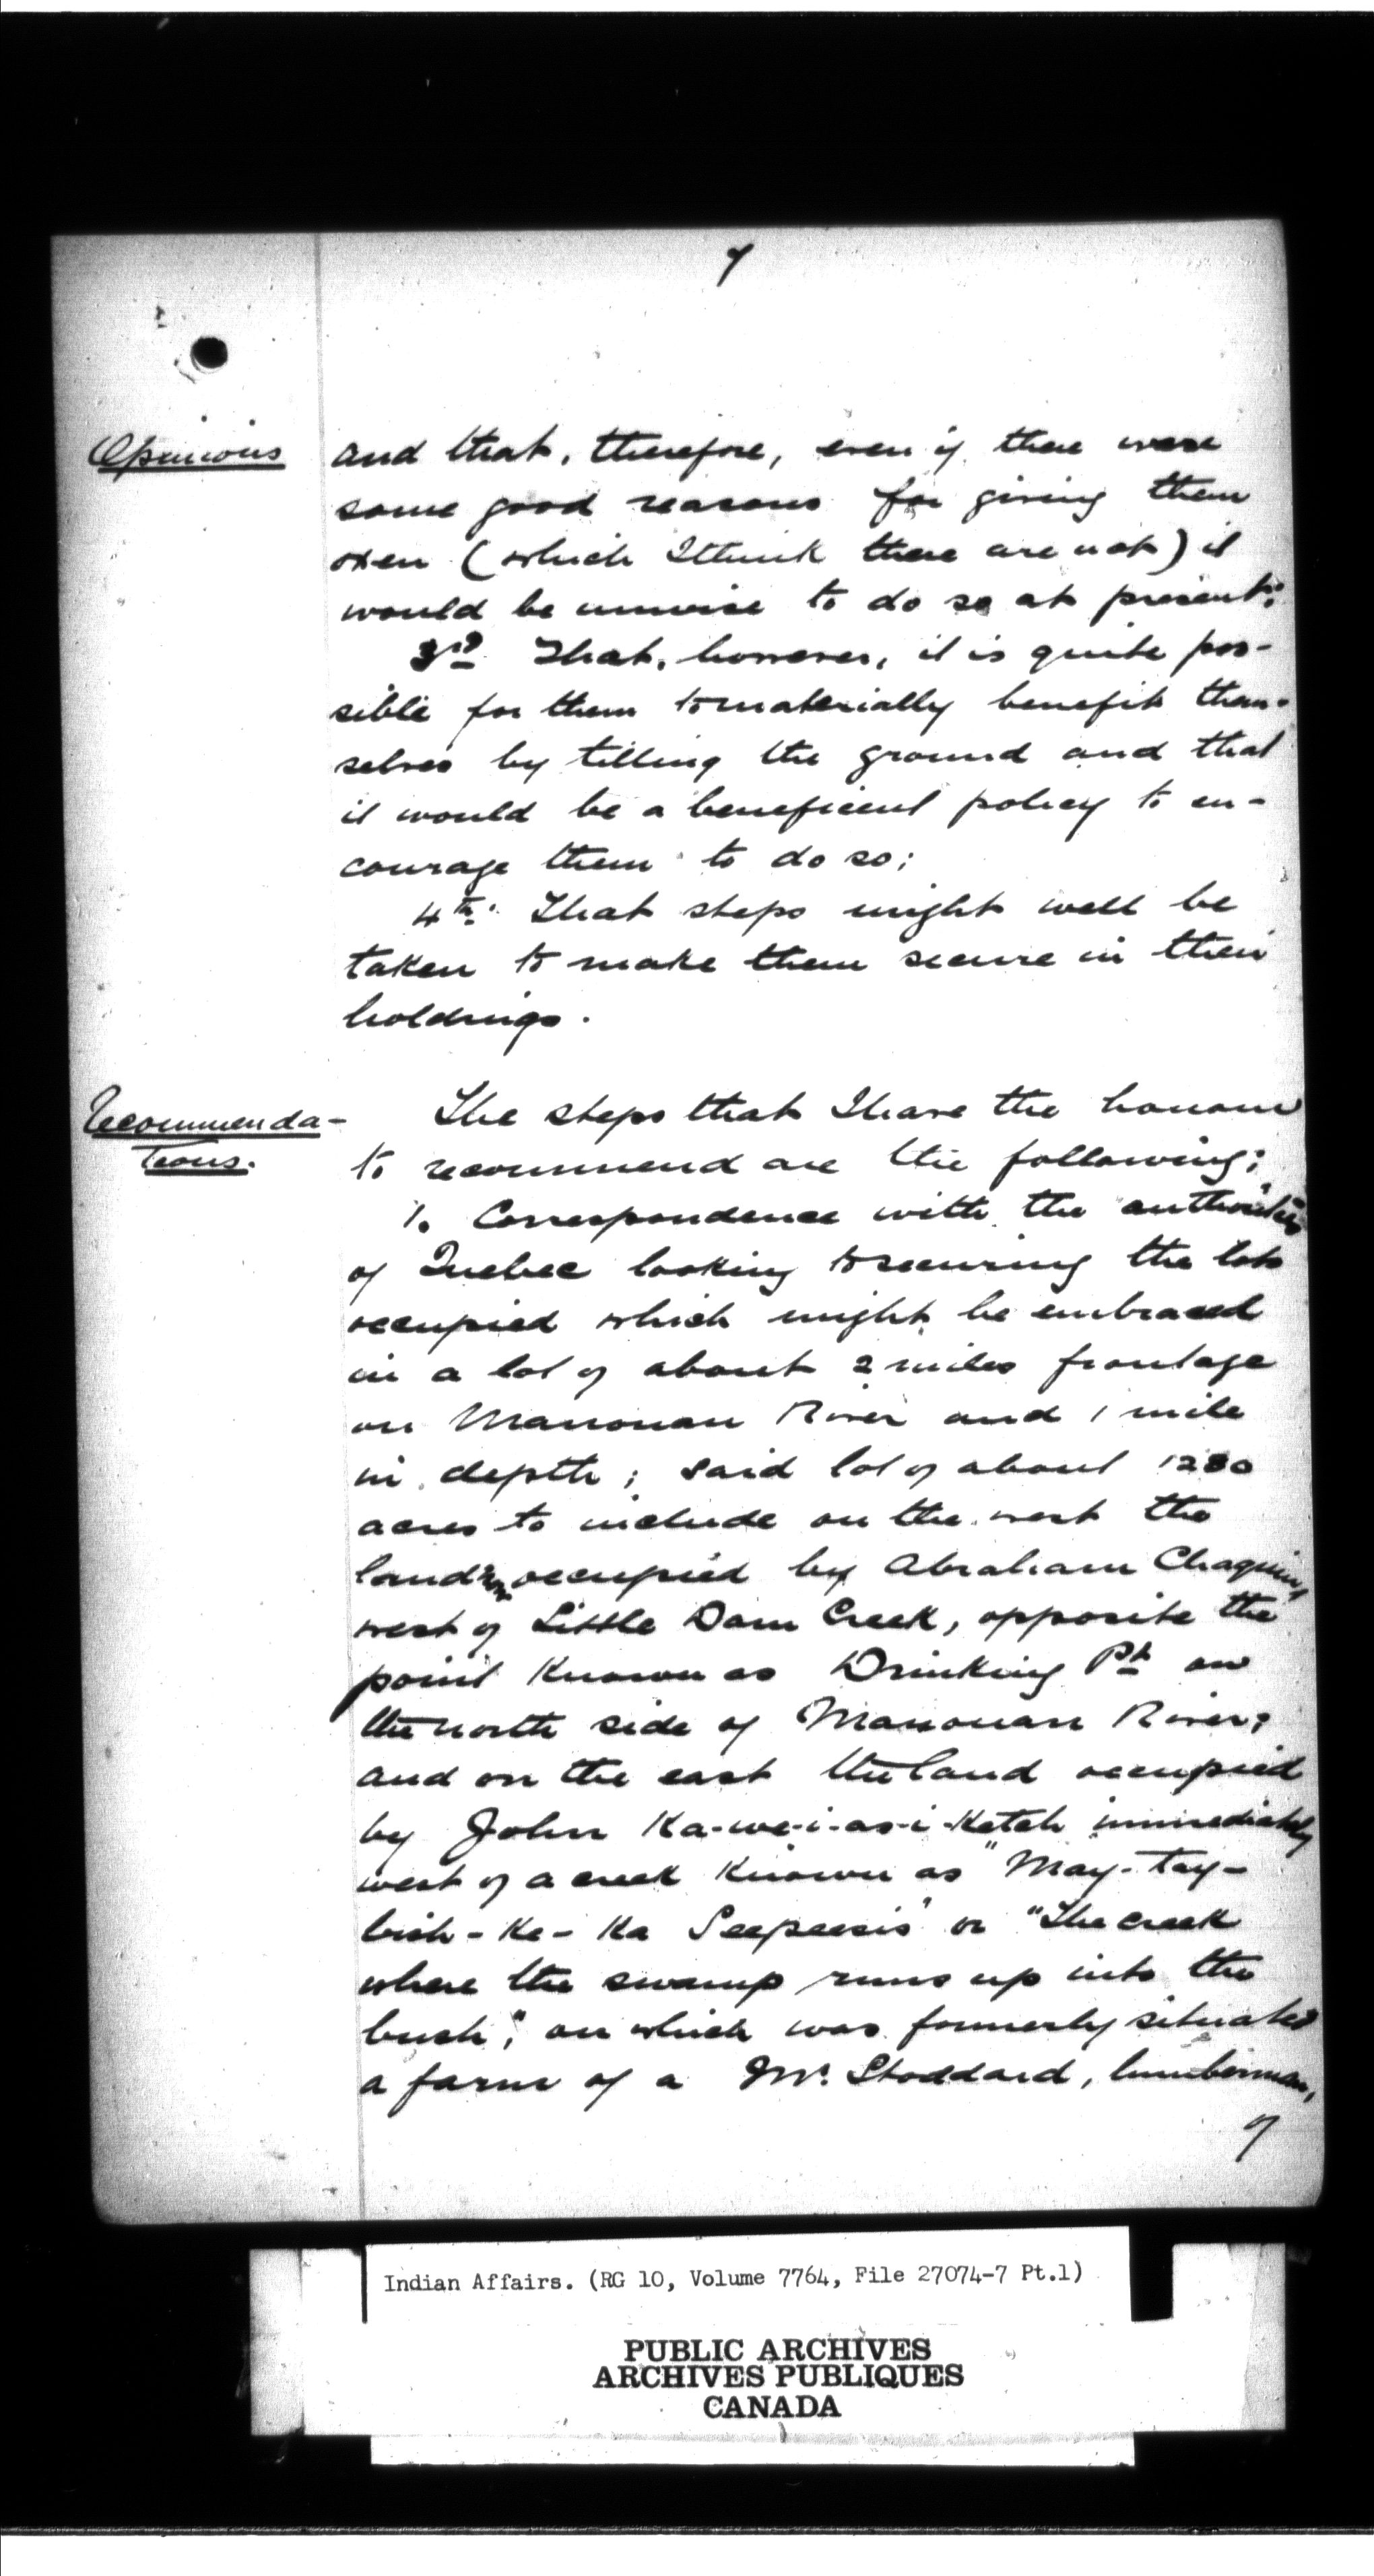 7
Opinions
and that, therefore, even if there were
some good reasons for giving them
oxen (which I think there are not) it
would be unwise to do so at present:
3rd. That, however, it is quite pos-
sible for them to materially benefit them-
selves by tilling the ground and that
it would be a beneficent policy to en-
courage them to do so;
4th. That steps might well be
taken to make them secure in their
holdings.
Recommenda-
tions.
The steps that I have the honour
to recommend are the following:
1. Correspondence with the authorities
of Quebec looking to securing the lots
occupied which might be embraced
in a lot of about 2 miles frontage
on Manouan River and 1 mile
in depth; said lot of about 1280
acres to include on the west the
land occupied by Abraham Chaquin,
west of Little Dam Creek, opposite the
point known as Drinking Pt on
the north side of Manouan River;
and on the east the land occupied
by John Ka-we-i-as-i-ketch immediately
west of a creek known as "May-tay-
bish-ke-ka Seepeesis" or "The creek
where the swamp runs up into the
bush", on which was formerly situated
a farm of a Mr. Stoddard, lumberman,
Indian Affairs. (RG 10, Volume 7764, File 27074-7 Pt.1)
PUBLIC ARCHIVES
ARCHIVES PUBLIQUES
CANADA